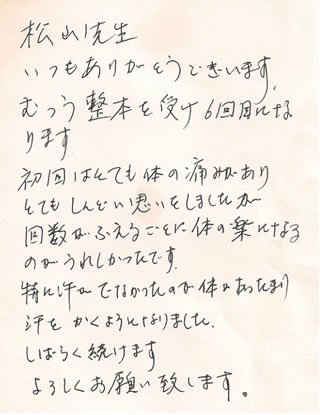 松山先生
いつもありがとうございます。
むつう整体を受け6回目にな
ります
初回はとても体の痛みがあり
とてもしんどい思いをしましたが
回数がふえるごとに体の楽になる
のがうれしかったです。
特に汗がでなかったのが体があったまり
汗をかくようになりました。
しばらく続けます
よろしくお願い致します。